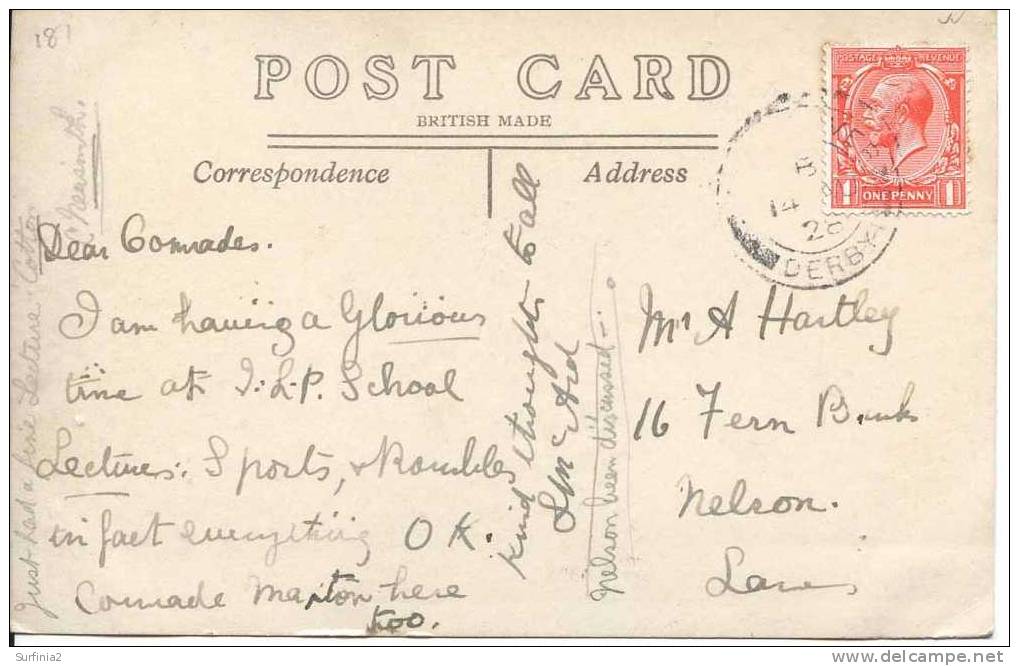 181
POST CARD
BRITISH MADE
Correspondence
Address
Dear Comrades.
I am having a Glorious
time at I.L.P. School
Lectures: Sports, & Rambles
in fact everything OK.
Comrade Maxton here
too.
Kind thoughts to all
Just had a fine Lecture Cotton
Nelson been discussed.
Mr A Hartley
16 Fern Bank
Nelson.
Lancs
POSTAGE REVENUE
1 ONE PENNY 1
DERBY
14
28
Surfinia2
www.delcampe.net